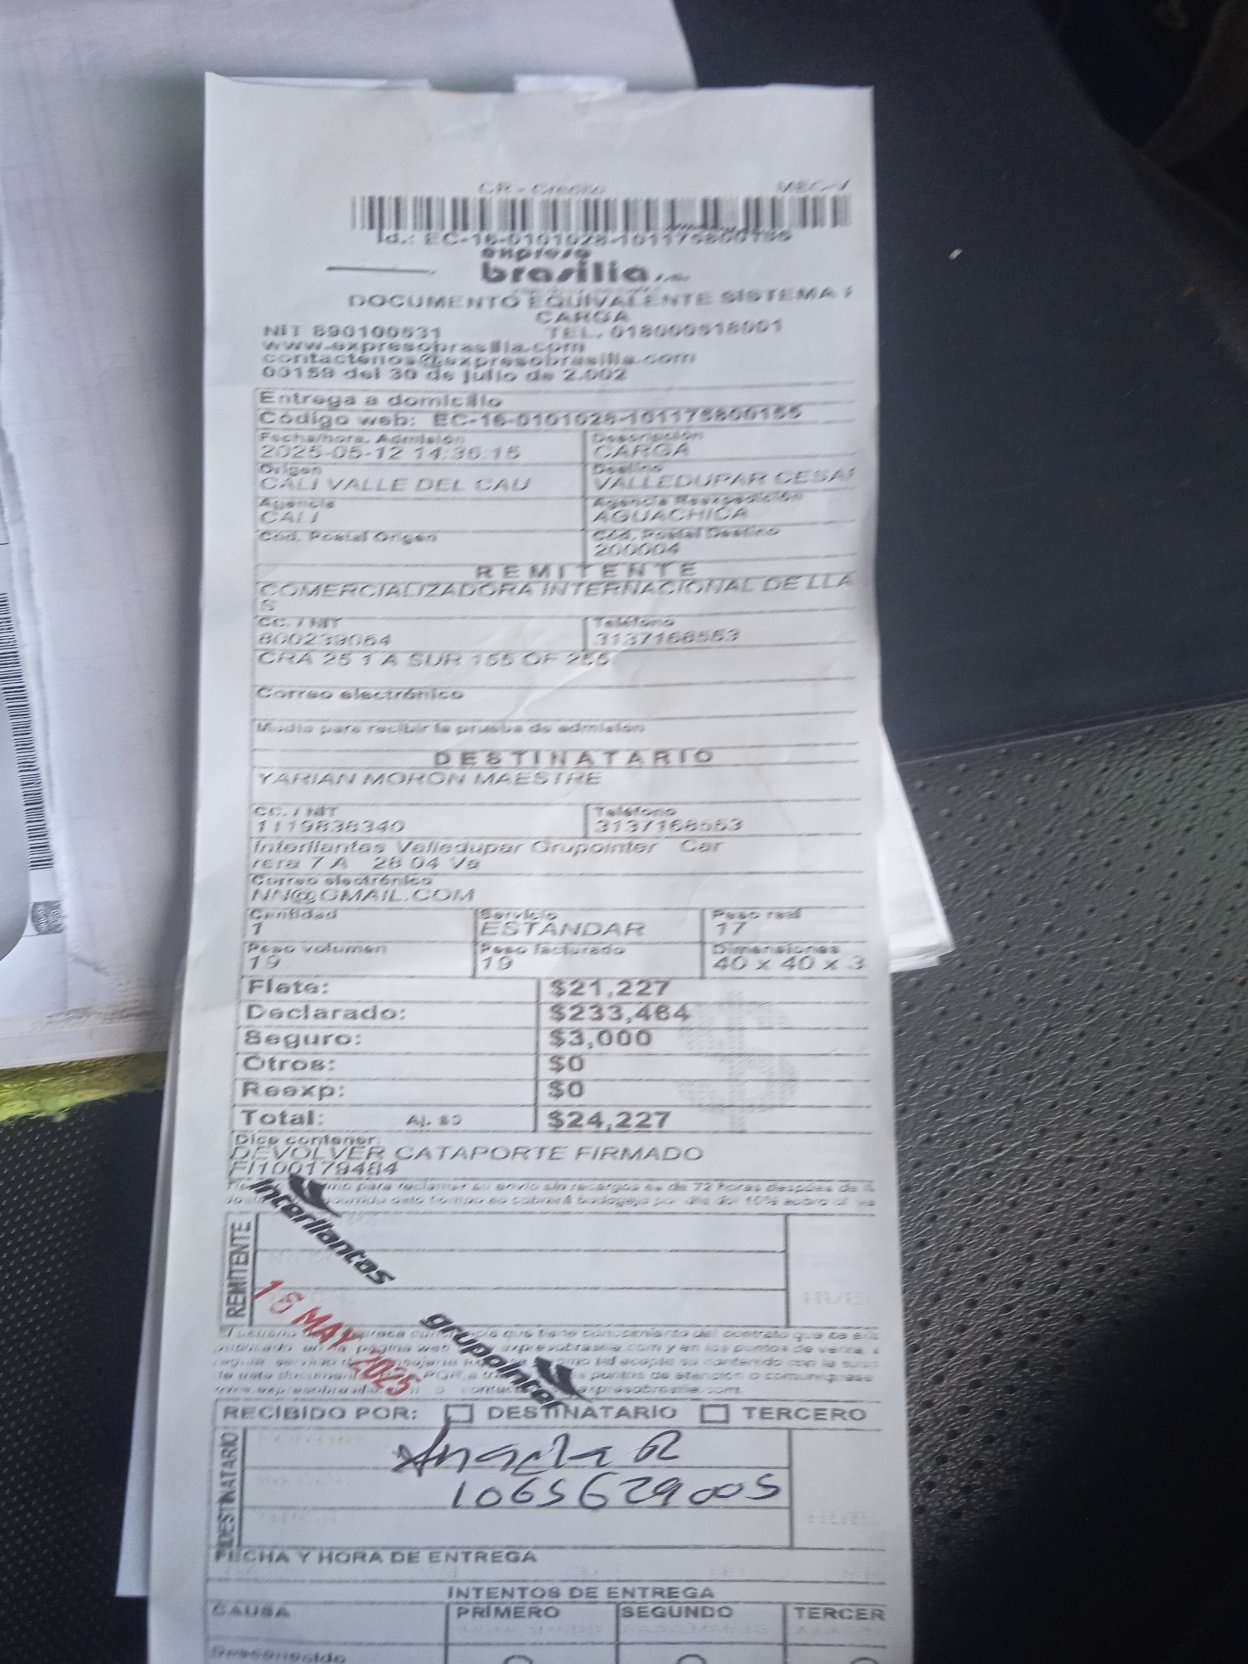 CR - Crédito MEC-V
Id.: EC-16-0101028-101175800155
expreso
brasilia s.a.
DOCUMENTO EQUIVALENTE SISTEMA
CARGA
NIT 890100531 TEL. 018000518001
www.expresobrasilia.com
contactenos@expresobrasilia.com
00158 del 30 de julio de 2.002
Entrega a domicilio
Código web: EC-16-0101028-101175800155
Fecha/hora. Admisión Descripción
2025-05-12 14:36:15 CARGA
Origen Destino
CALI VALLE DEL CAU VALLEDUPAR CESAR
Agencia Agencia Reexpedición
CALI AGUACHICA
Cód. Postal Origen Cód. Postal Destino
200004
REMITENTE
COMERCIALIZADORA INTERNACIONAL DE LLA
S
CC. / NIT Teléfono
800239064 3137168553
CRA 25 1 A SUR 155 OF 255
Correo electrónico
Medio para recibir la prueba de admisión
DESTINATARIO
YARIAN MORON MAESTRE
CC. / NIT Teléfono
1119838340 3137168553
Interllantas Valledupar Grupointer Car
rera 7 A 28 04 Va
Correo electrónico
NN@GMAIL.COM
Cantidad Servicio Peso real
1 ESTANDAR 17
Peso volumen Peso facturado Dimensiones
19 19 40 x 40 x 3
Flete: $21,227
Declarado: $233,464
Seguro: $3,000
Otros: $0
Reexp: $0
Total: Aj. $0 $24,227
Dice contener:
DEVOLVER CATAPORTE FIRMADO
FI100179484
para reclamar su envío sin recargos es de 72 horas después de
este tiempo se cobrará bodegaje por día del 10% sobre el
interllantas
REMITENTE
16 MAY 2025
grupointer
que tiene conocimiento del contrato que se
publicado en la página web expresobrasilia.com y en los puntos de venta,
acepta su contenido con la
puntos de atención o comuníquese
www.expresobrasilia.com expresobrasilia.com
RECIBIDO POR: DESTINATARIO TERCERO
DESTINATARIO
Angela R
1065629005
FECHA Y HORA DE ENTREGA
INTENTOS DE ENTREGA
CAUSA PRIMERO SEGUNDO TERCER
Desconocido